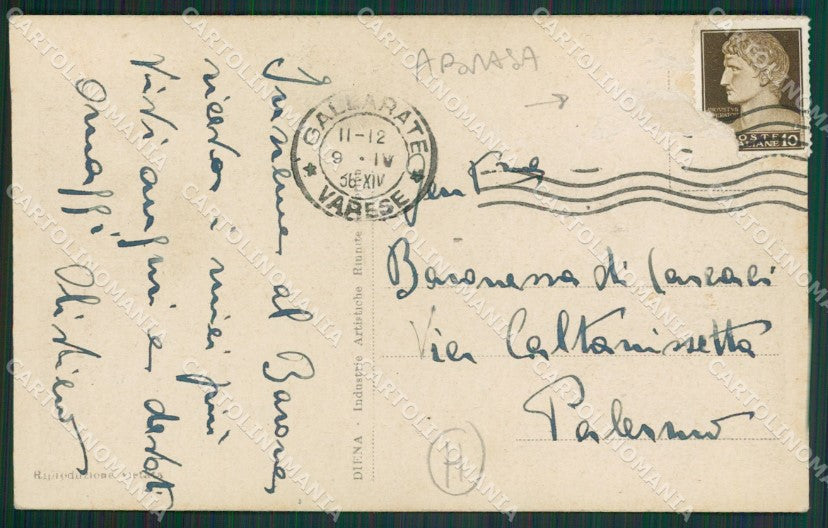 ABRASA
GALLARATE
11-12
9 · IV
36 XIV
VARESE
POSTE
ITALIANE 10
Insieme al Barone
riceva i miei più
vivi auguri e devoti
Omaggi
Gen
Baronessa di
Via Caltanissetta
Palermo
H
DIENA - Industrie Artistiche Riunite
Riproduzione vietata
CARTOLINOMANIA